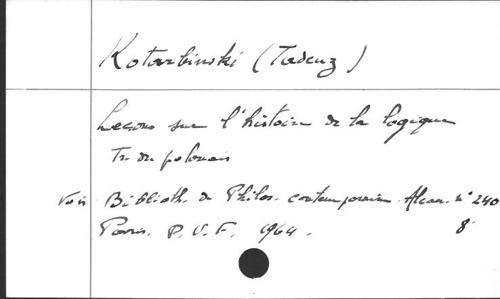 Kotarbinski (Tadeuz)
Leçons sur l'histoire de la logique
Tr. du polonais
Voir Biblioth. de Philos. contemporaine. Alcan. n° 240
Paris. P.U.F. 1964. 8°